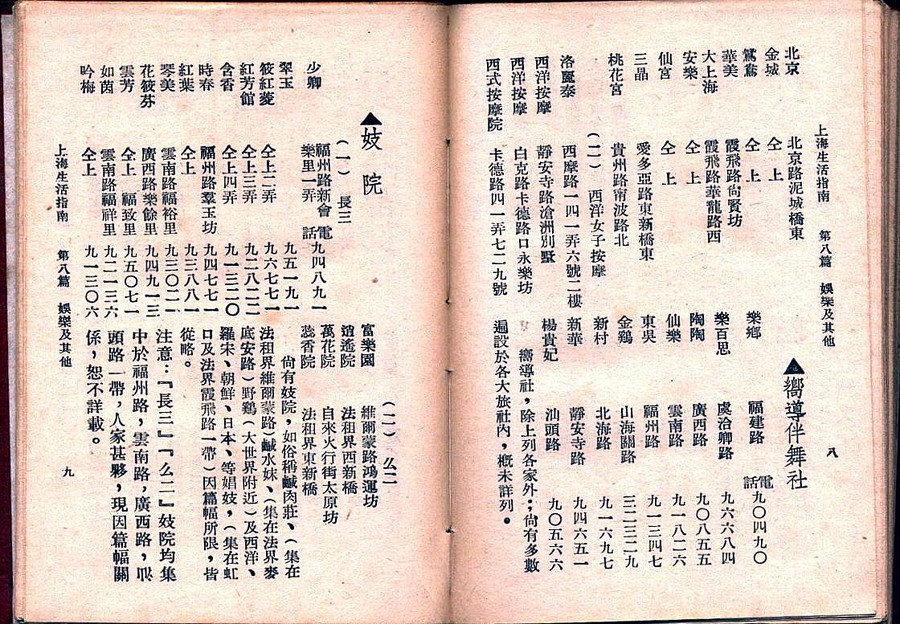 上海生活指南　第八篇　娛樂及其他　八
北京　北京路泥城橋東
金城　仝上
鴛鴦　仝上
華美　霞飛路尙賢坊
大上海　霞飛路華龍路西
安樂　仝上
仙宮　仝上
三晶　愛多亞路東新橋東
桃花宮　貴州路甯波路北
（二）　西洋女子按摩
洛麗泰　西摩路一四一弄六號二樓
西洋按摩　靜安寺路滄洲別墅
西洋按摩　白克路卡德路口永樂坊
西式按摩院　卡德路四一弄七二九號
▲嚮導伴舞社
樂鄉　福建路　電話九〇四九〇
樂百思　虞洽卿路　九六六八四
陶陶　廣西路　九〇八五五
仙樂　雲南路　九一八二六
東吳　福州路　九一三四七
金鷄　山海關路　三二三二九
新村　北海路　九一六九七
新華　靜安寺路　九四六五一
楊貴妃　汕頭路　九〇五六六
嚮導社，除上列各家外；尙有多數
遍設於各大旅社內，概未詳列。
▲妓院
（一）　長三
少卿　福州路新會樂里一弄　電話九四八九一
翠玉　九五一九一
筱紅菱　仝上二弄　九六七七一
紅芳館　仝上三弄　九二八二二
含香　仝上四弄　九一三二〇
時春　福州路羣玉坊　九四七七一
紅葉　仝上　九三八八一
琴美　雲南路福裕里　九三〇二一
花筱芬　廣西路樂餘里　九四九一三
雲芳　仝上　福致里　九五〇七一
如茵　雲南路福祥里　九二一三六
吟梅　仝上　九一三〇六
（二）　么二
富樂園　維爾蒙路鴻運坊
逍遙院　法租界西新橋
萬花院　自來火行街太原坊
蕊香院　法租界東新橋
尙有妓院，如俗稱鹹肉莊、（集在
法租界維爾蒙路）鹹水妹、（集在法界麥
底安路）野鷄（大世界附近）及西洋、
羅宋、朝鮮、日本、等娼妓，（集在虹
口及法界霞飛路一帶）因篇幅所限，皆
從略。
注意：『長三』『么二』妓院均集
中於福州路，雲南路，廣西路，汕
頭路一帶，人家甚夥，現因篇幅關
係，恕不詳載。
上海生活指南　第八篇　娛樂及其他　九